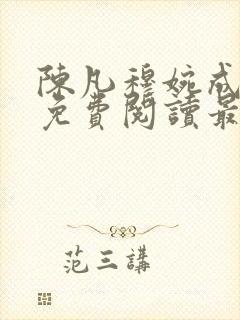 陳凡穆婉戒
免費閱讀最
范三講